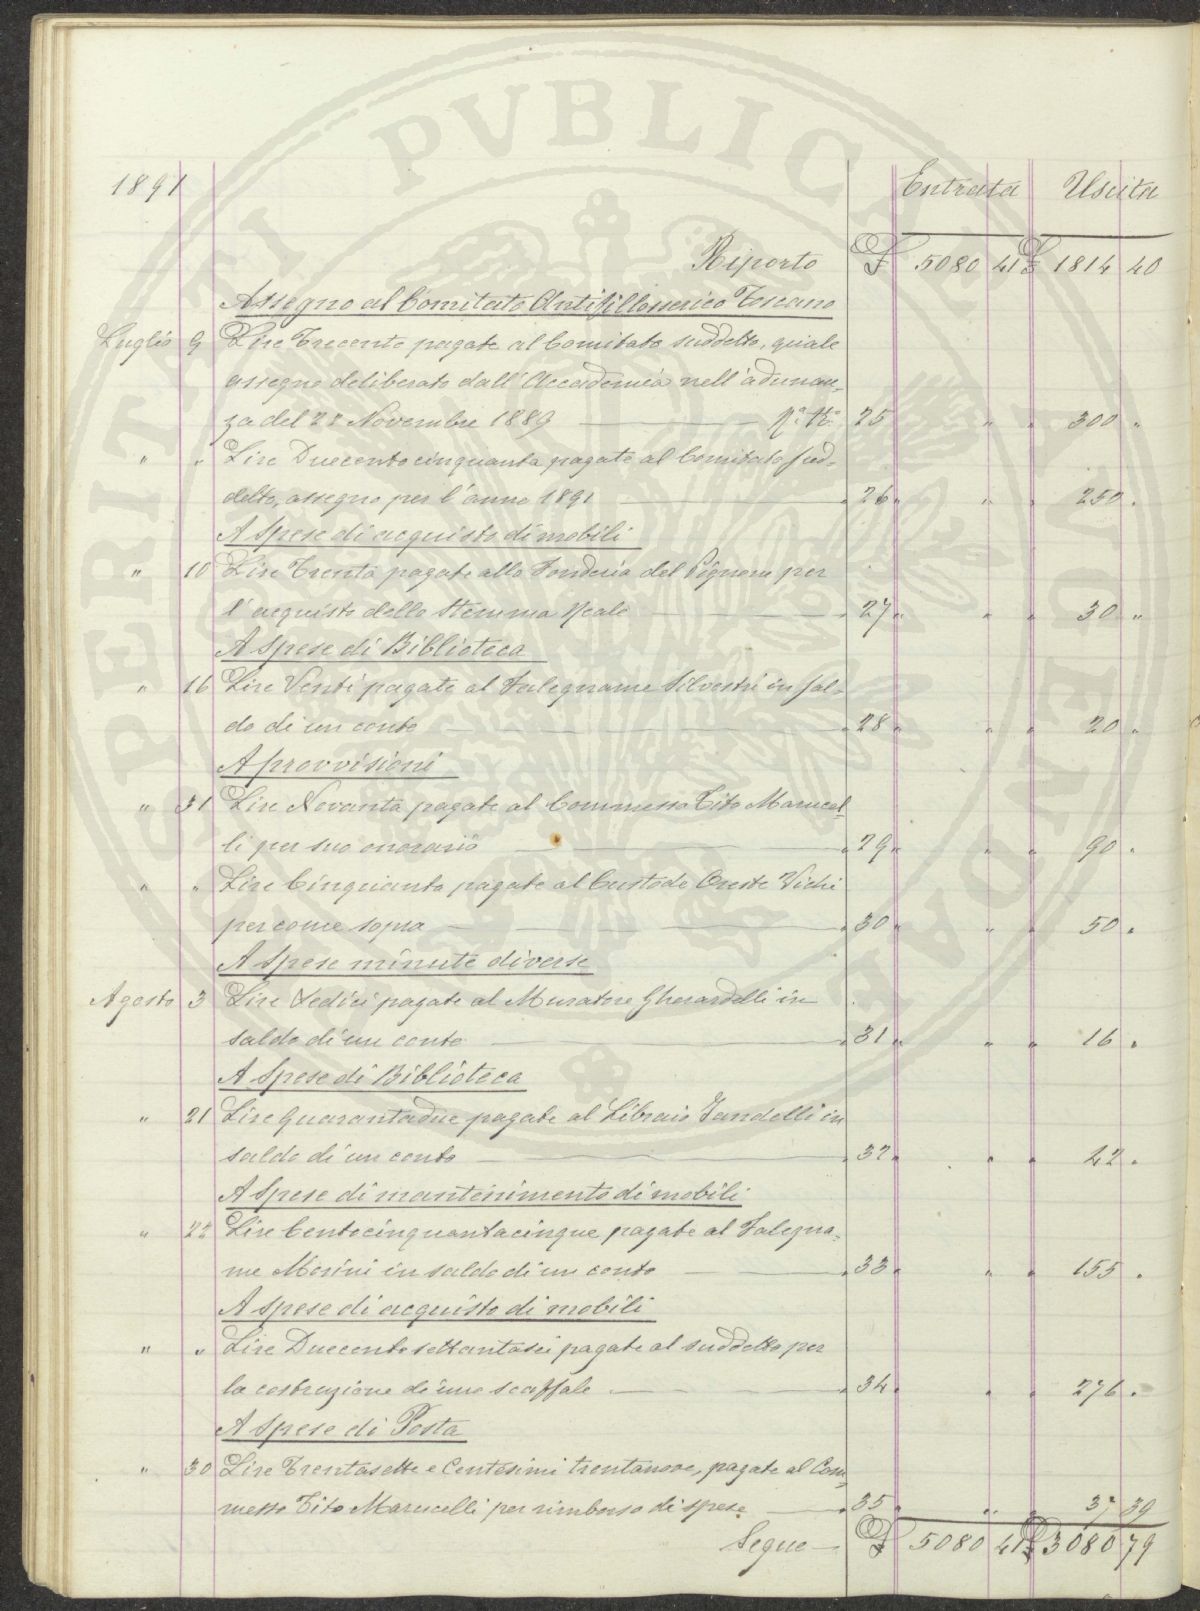 PERITATI PVBLICAE AVGENDAE
1891
Entrata Uscita
Riporto £ 5080 41 £ 1814 40
Assegno al Comitato Antifillosserico Toscano
Luglio 9 Lire Trecento pagate al Comitato suddetto, quale
assegno deliberato dall'Accademia nell'adunan-
za del 28 Novembre 1889 25 " " 300 "
" " Lire Duecentocinquanta pagate al Comitato sud-
detto, assegno per l'anno 1891 " 26 " " " 250 "
A Spese di acquisto di mobili
" 10 Lire Trenta pagate alla Fonderia del Pignone per
l'acquisto dello Stemma Reale " 27 " " " 30 "
A Spese di Biblioteca
" 16 Lire Venti pagate al Falegname Silvestri in sal-
do di un conto " 28 " " " 20 "
A provvisioni
" 31 Lire Novanta pagate al Commesso Tito Marucel-
li per suo onorario " 29 " " " 90 "
" " Lire Cinquanta pagate al Custode Oreste Vichi
per come sopra " 30 " " " 50 "
A Spese minute diverse
Agosto 3 Lire Sedici pagate al Muratore Gherardelli in
saldo di un conto " 31 " " " 16 "
A Spese di Biblioteca
" 21 Lire Quarantadue pagate al Libraio Jandelli in
saldo di un conto " 32 " " " 42 "
A Spese di mantenimento di mobili
" 22 Lire Centocinquantacinque pagate al Falegna-
me Morini in saldo di un conto " 33 " " " 155 "
A Spese di acquisto di mobili
" " Lire Duecento settantasei pagate al suddetto per
la costruzione di uno scaffale " 34 " " " 276 "
A Spese di Posta
" 30 Lire Trentasette e Centesimi trentanove, pagate al Com-
messo Tito Marucelli per rimborso di spese " 35 " " " 37 39
Segue £ 5080 41 £ 3080 79